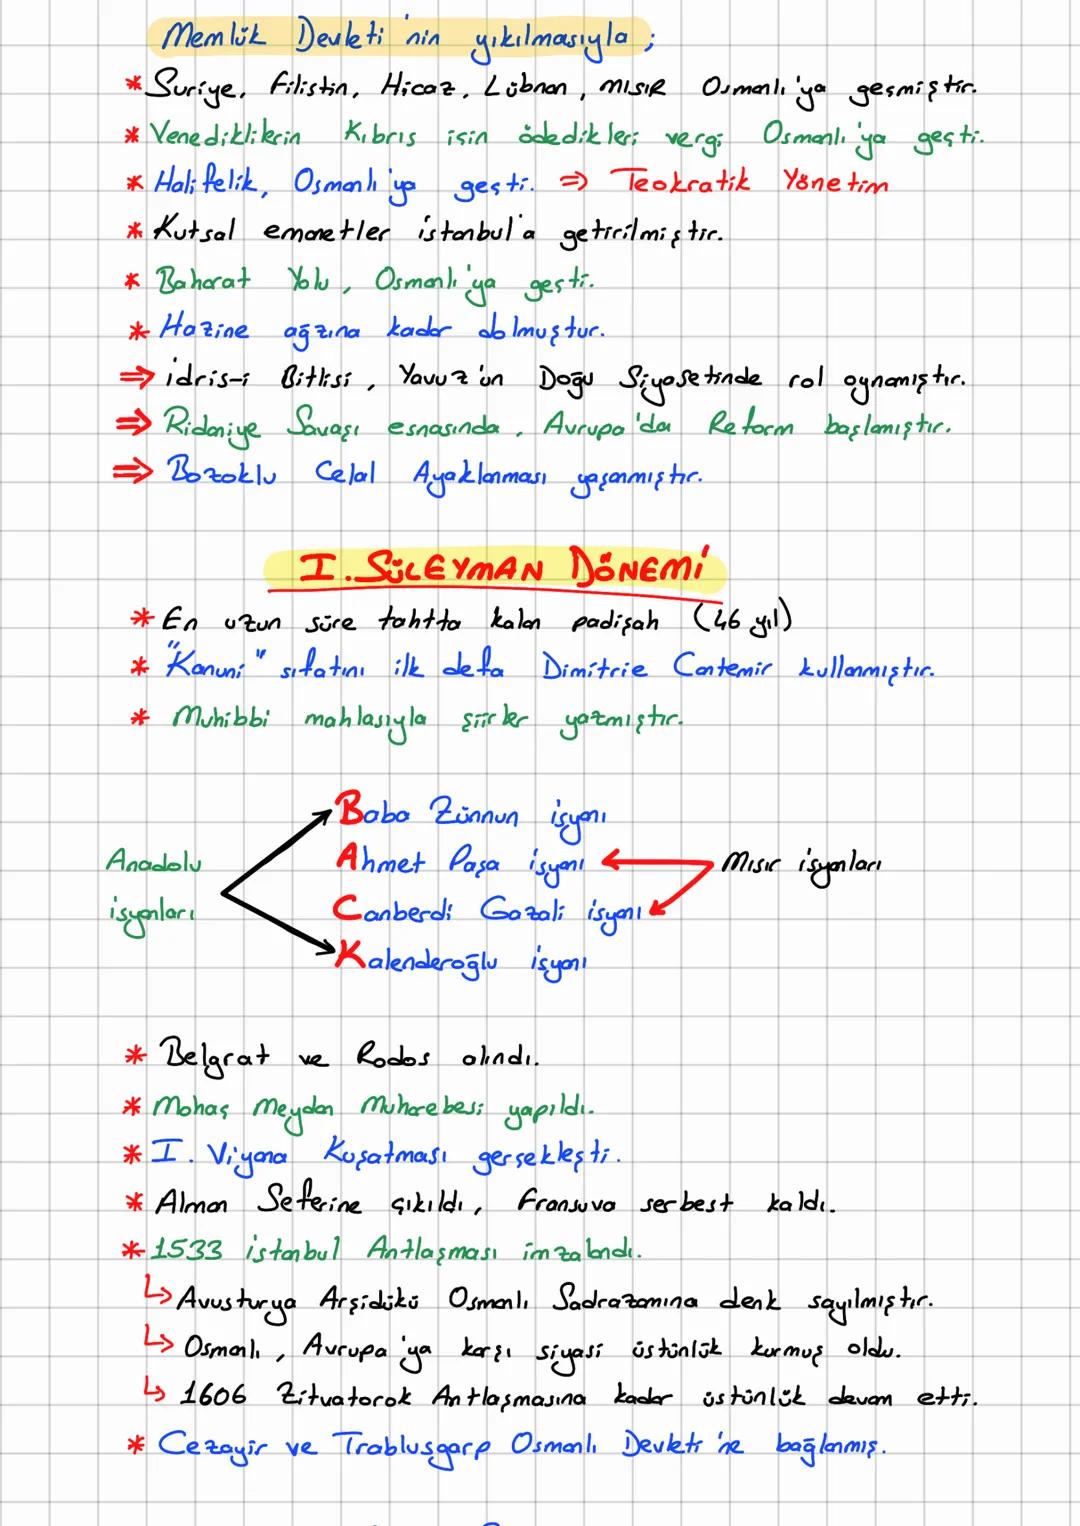 Memlük Devleti'nin yıkılmasıyla;
* Suriye, Filistin, Hicaz, Lübnan, MISIR Osmanlı'ya geçmiştir.
* Venediklilerin Kıbrıs için ödedikleri vergi Osmanlı'ya geçti.
* Halifelik, Osmanlı'ya geçti. ⇒ Teokratik Yönetim
* Kutsal emanetler İstanbul'a getirilmiştir.
* Baharat Yolu, Osmanlı'ya geçti.
* Hazine ağzına kadar dolmuştur.
⇒ idris-i Bitlisi, Yavuz'un Doğu Siyasetinde rol oynamıştır.
⇒ Ridaniye Savaşı esnasında, Avrupa'da Reform başlamıştır.
⇒ Bozoklu Celal Ayaklanması yaşanmıştır.
I. SÜLEYMAN DÖNEMİ
* En uzun süre tahtta kalan padişah (46 yıl)
* "Kanuni" sıfatını ilk defa Dimitrie Cantemir kullanmıştır.
* Muhibbi mahlasıyla şiirler yazmıştır.
Baba Zünnun isyanı
Anadolu isyanları
Ahmet Paşa isyanı
Mısır isyanları
Canberdi Gazali isyanı
Kalenderoğlu isyanı
* Belgrat ve Rodos alındı.
* Mohaç Meydan Muharebesi yapıldı.
* I. Viyana Kuşatması gerçekleşti.
* Alman Seferine çıkıldı, Fransuva serbest kaldı.
* 1533 istanbul Antlaşması imzalandı.
↳ Avusturya Arşidükü Osmanlı Sadrazamına denk sayılmıştır.
↳ Osmanlı, Avrupa'ya karşı siyasi üstünlük kurmuş oldu.
↳ 1606 Zitvatorok Antlaşmasına kadar üstünlük devam etti.
* Cezayir ve Trablusgarp Osmanlı Devleti'ne bağlanmış.